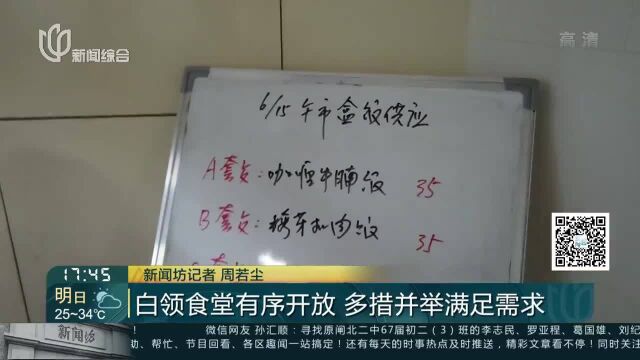 新闻综合
高清
6/15 午市盒饭供应
A套餐:咖喱牛腩饭 35
B套餐:梅芽扣肉饭 35
17:45
新闻坊记者 周若尘
明日
25~34℃
白领食堂有序开放 多措并举满足需求
新闻坊
! 微信网友 孙汇顺:寻找原闸北二中67届初二(3)班的李志民、罗亚程、葛国雄、刘纪
助、帮忙、节目回看、各区趣闻一站搞定!还有每天的时事热点及时推送,精彩文章看不停!同时关注